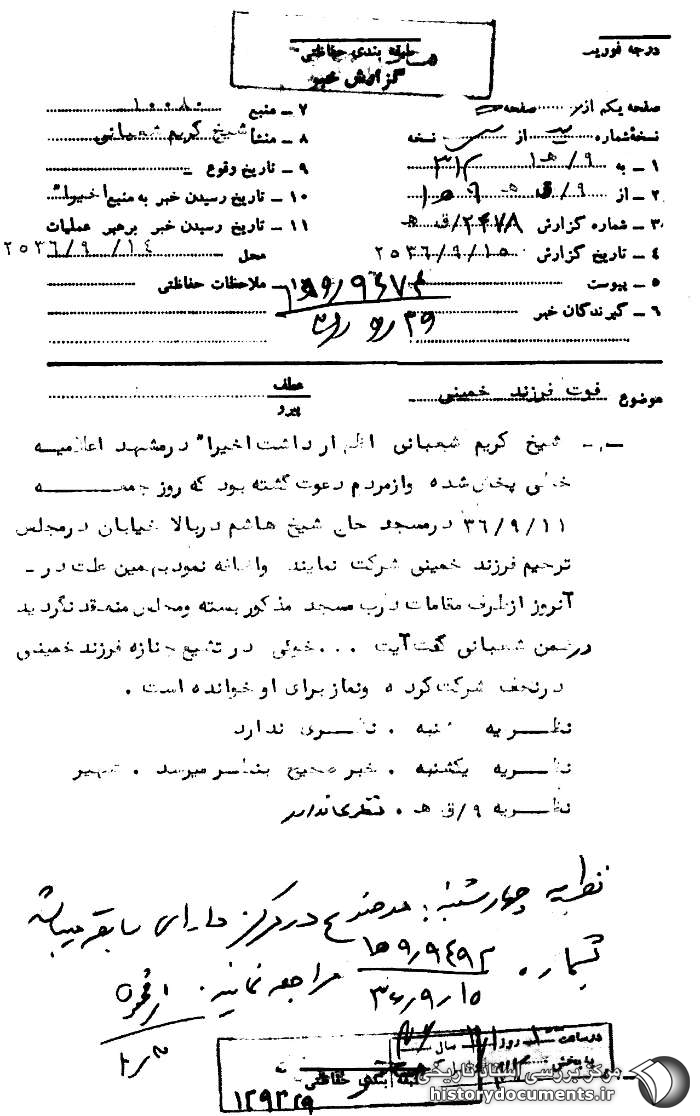 درجه فوریت
طبقه بندی حفاظتی
گزارش خبر
صفحه یکم از صفحه
نسخه شماره از نسخه
۱ - به ۳۱۲ / ه‍ ۹
۲ - از ۹/ق ه‍
۳ - شماره گزارش ۲۴۷۸/ق ه‍
۴ - تاریخ گزارش ۲۵۳۶/۹/۱۵
۵ - پیوست
۶ - گیرندگان خبر
۷ - منبع ۱۰۰۸۰
۸ - منشا شیخ کریم شعبانی
۹ - تاریخ وقوع -
۱۰ - تاریخ رسیدن خبر به منبع اخیرا"
۱۱ - تاریخ رسیدن خبر برهبر عملیات
محل ۲۵۳۶/۹/۱۴
ملاحظات حفاظتی
موضوع فوت فرزند خمینی
عطف
پیرو
شیخ کریم شعبانی اظهار داشت اخیرا" در مشهد اعلامیه
خطی پخش شده وازمردم دعوت گشته بود که روز جمعه
۳۶/۹/۱۱ درمسجد حاج شیخ هاشم دربالا خیابان درمجلس
ترحیم فرزند خمینی شرکت نمایند واضافه نمود بهمین علت در -
آنروز ازطرف مقامات درب مسجد مذکور بسته ومجلس منعقد نگردید
درضمن شعبانی گفت آیت ... خوئی در تشیع جنازه فرزند خمینی
درنجف شرکت کرده ونماز برای او خوانده است .
نظریه شنبه . نظری ندارد
نظریه یکشنبه . خبر صحیح بنظر میرسد .
نظریه ۹/ق ه‍ . نظری ندارد
نظریه چهارشنبه : موضوع در مرکز دارای سابقه میباشد
بشماره ۱۵۹٫۹۴۹۲ مراجعه نمائید .
۳۶٫۹٫۱۵
درساعت روز سال
به بخش
طبقه بندی حفاظتی
۱۲۹۳۲۹
مرکز بررسی اسناد تاریخی
historydocuments.ir